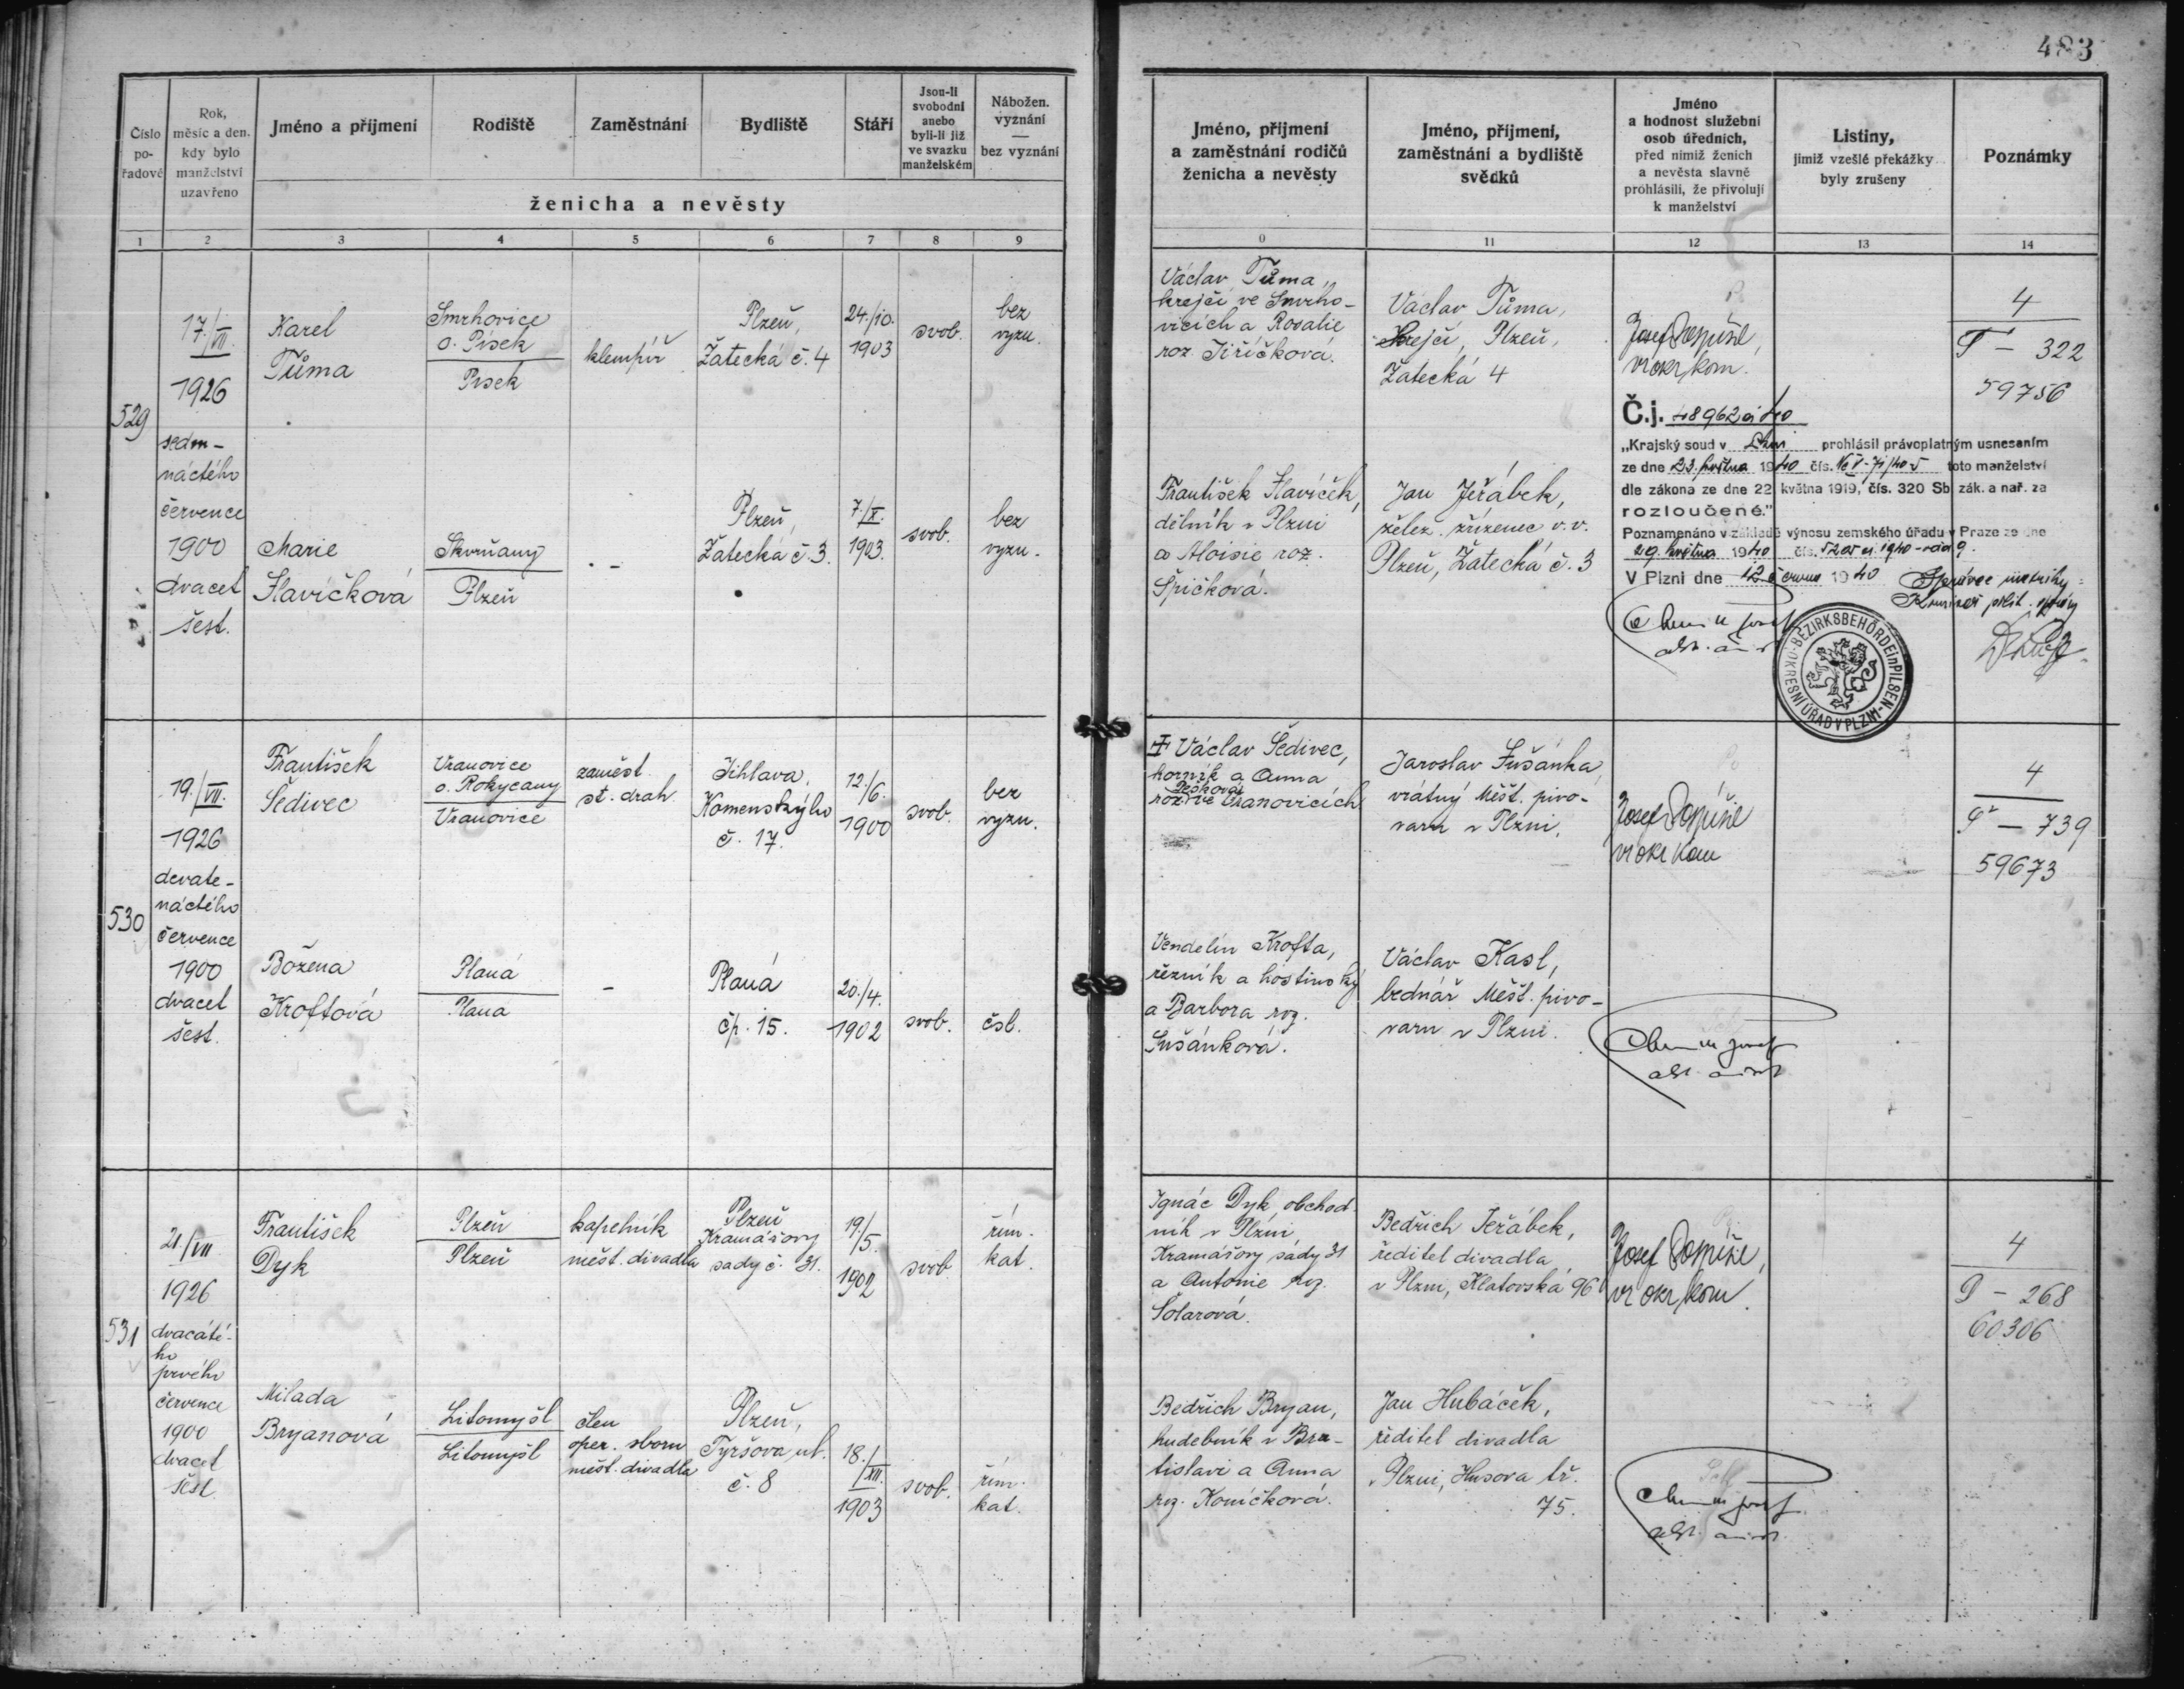 483
Číslo po- řadové
Rok, měsíc a den, kdy bylo manželství uzavřeno
Jméno a příjmení
Rodiště
Zaměstnání
Bydliště
Stáří
Jsou-li svobodni anebo byli-li již ve svazku manželském
Nábožen. vyznání — bez vyznání
ženicha a nevěsty
Jméno, příjmení a zaměstnání rodičů ženicha a nevěsty
Jméno, příjmení, zaměstnání a bydliště svědků
Jméno a hodnost služební osob úředních, před nimiž ženich a nevěsta slavně prohlásili, že přivolují k manželství
Listiny, jimiž vzešlé překážky byly zrušeny
Poznámky
1 2 3 4 5 6 7 8 9 0 11 12 13 14
529
17./VII.
1926
sedm-
náctého
července
1900
dvacet
šest.
Karel
Tůma
Smrhovice
o. Písek
Písek
klempíř
Plzeň,
Žatecká č. 4
24./10.
1903
svob.
bez
vyzn.
Václav Tůma,
krejčí ve Smrho-
vicích a Rosalie
roz. Jiříčková.
Václav Tůma,
Krejčí, Plzeň,
Žatecká 4
Josef Pospíšil,
vr. okr. kom.
4
T – 322
59756
Marie
Hlavíčková
Skvrňany
Plzeň
-
Plzeň,
Žatecká č. 3.
7./X.
1903.
svob.
bez
vyzn.
František Hlavíček,
dělník v Plzni
a Aloisie roz.
Špičková.
Jan Jeřábek,
želez. zřízenec v. v.
Plzeň, Žatecká č. 3
Č.j. 48962 ai 40
„Krajský soud v Plzni prohlásil právoplatným usnesením
ze dne 23. května 1940 čís. toto manželství
dle zákona ze dne 22. května 1919, čís. 320 Sb. zák. a nař. za
rozloučené."
Poznamenáno v základě výnosu zemského úřadu v Praze ze dne
29. května 1940 čís.
V Plzni dne 12. června 1940
Správce matriky:
OKRESNÍ ÚŘAD V PLZNI - BEZIRKSBEHÖRDE in PILSEN
530
19./VII.
1926
devate-
náctého
července
1900
dvacet
šest.
František
Šedivec
Vranovice
o. Rokycany
Vranovice
zaměst.
st. drah
Jihlava,
Komenského
č. 17.
12./6.
1900
svob.
bez
vyzn.
Václav Šedivec,
horník a Anna
roz. ve Vranovicích
Jaroslav Sušánka,
vrátný Měšť. pivo-
varu v Plzni.
Josef Pospíšil
vr okr kom
4
– 739
59673
Božena
Kroftová
Planá
Planá
-
Planá
čp. 15.
20./4.
1902
svob.
čsl.
Vendelín Krofta,
řezník a hostinský
a Barbora roz.
Sušánková.
Václav Kasl,
bednář Měšť. pivo-
varu v Plzni.
531
21./VII
1926
dvacáté-
ho
prvého
července
1900
dvacet
šest
František
Dyk
Plzeň
Plzeň
kapelník
měst. divadla
Plzeň
Kramářovy
sady č. 31.
19/5.
1902
svob
řím.
kat.
Ignác Dyk, obchod-
ník v Plzni
Kramářovy sady 31
a Antonie roz.
Šolarová.
Bedřich Jeřábek,
ředitel divadla
v Plzni, Klatovská 96
Josef Pospíšil,
vr okr kom.
4
D – 268
60306
Milada
Bryanová
Litomyšl
Litomyšl
člen
oper. sboru
měst. divadla
Plzeň,
Tyršova ul.
č. 8
18./XII.
1903
svob.
řím.
kat.
Bedřich Bryan,
hudebník v Bra-
tislavi a Anna
roz. Koníčková.
Jan Hubáček,
ředitel divadla
v Plzni, Husova tř.
75.